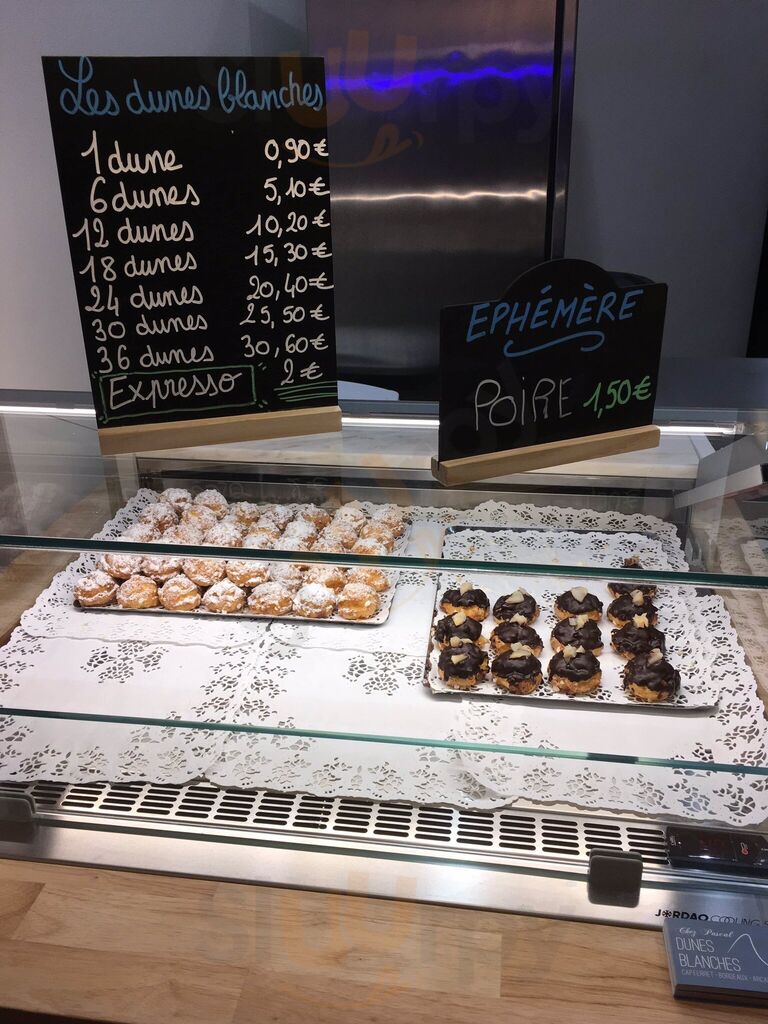 Les dunes blanches
1 dune 0,90€
6 dunes 5,10€
12 dunes 10,20€
18 dunes 15,30€
24 dunes 20,40€
30 dunes 25,50€
36 dunes 30,60€
Expresso 2€
EPHÉMÈRE
POIRE 1,50€
JORDAO COOLING
Chez Pascal
DUNES
BLANCHES
CAP FERRET - BORDEAUX -